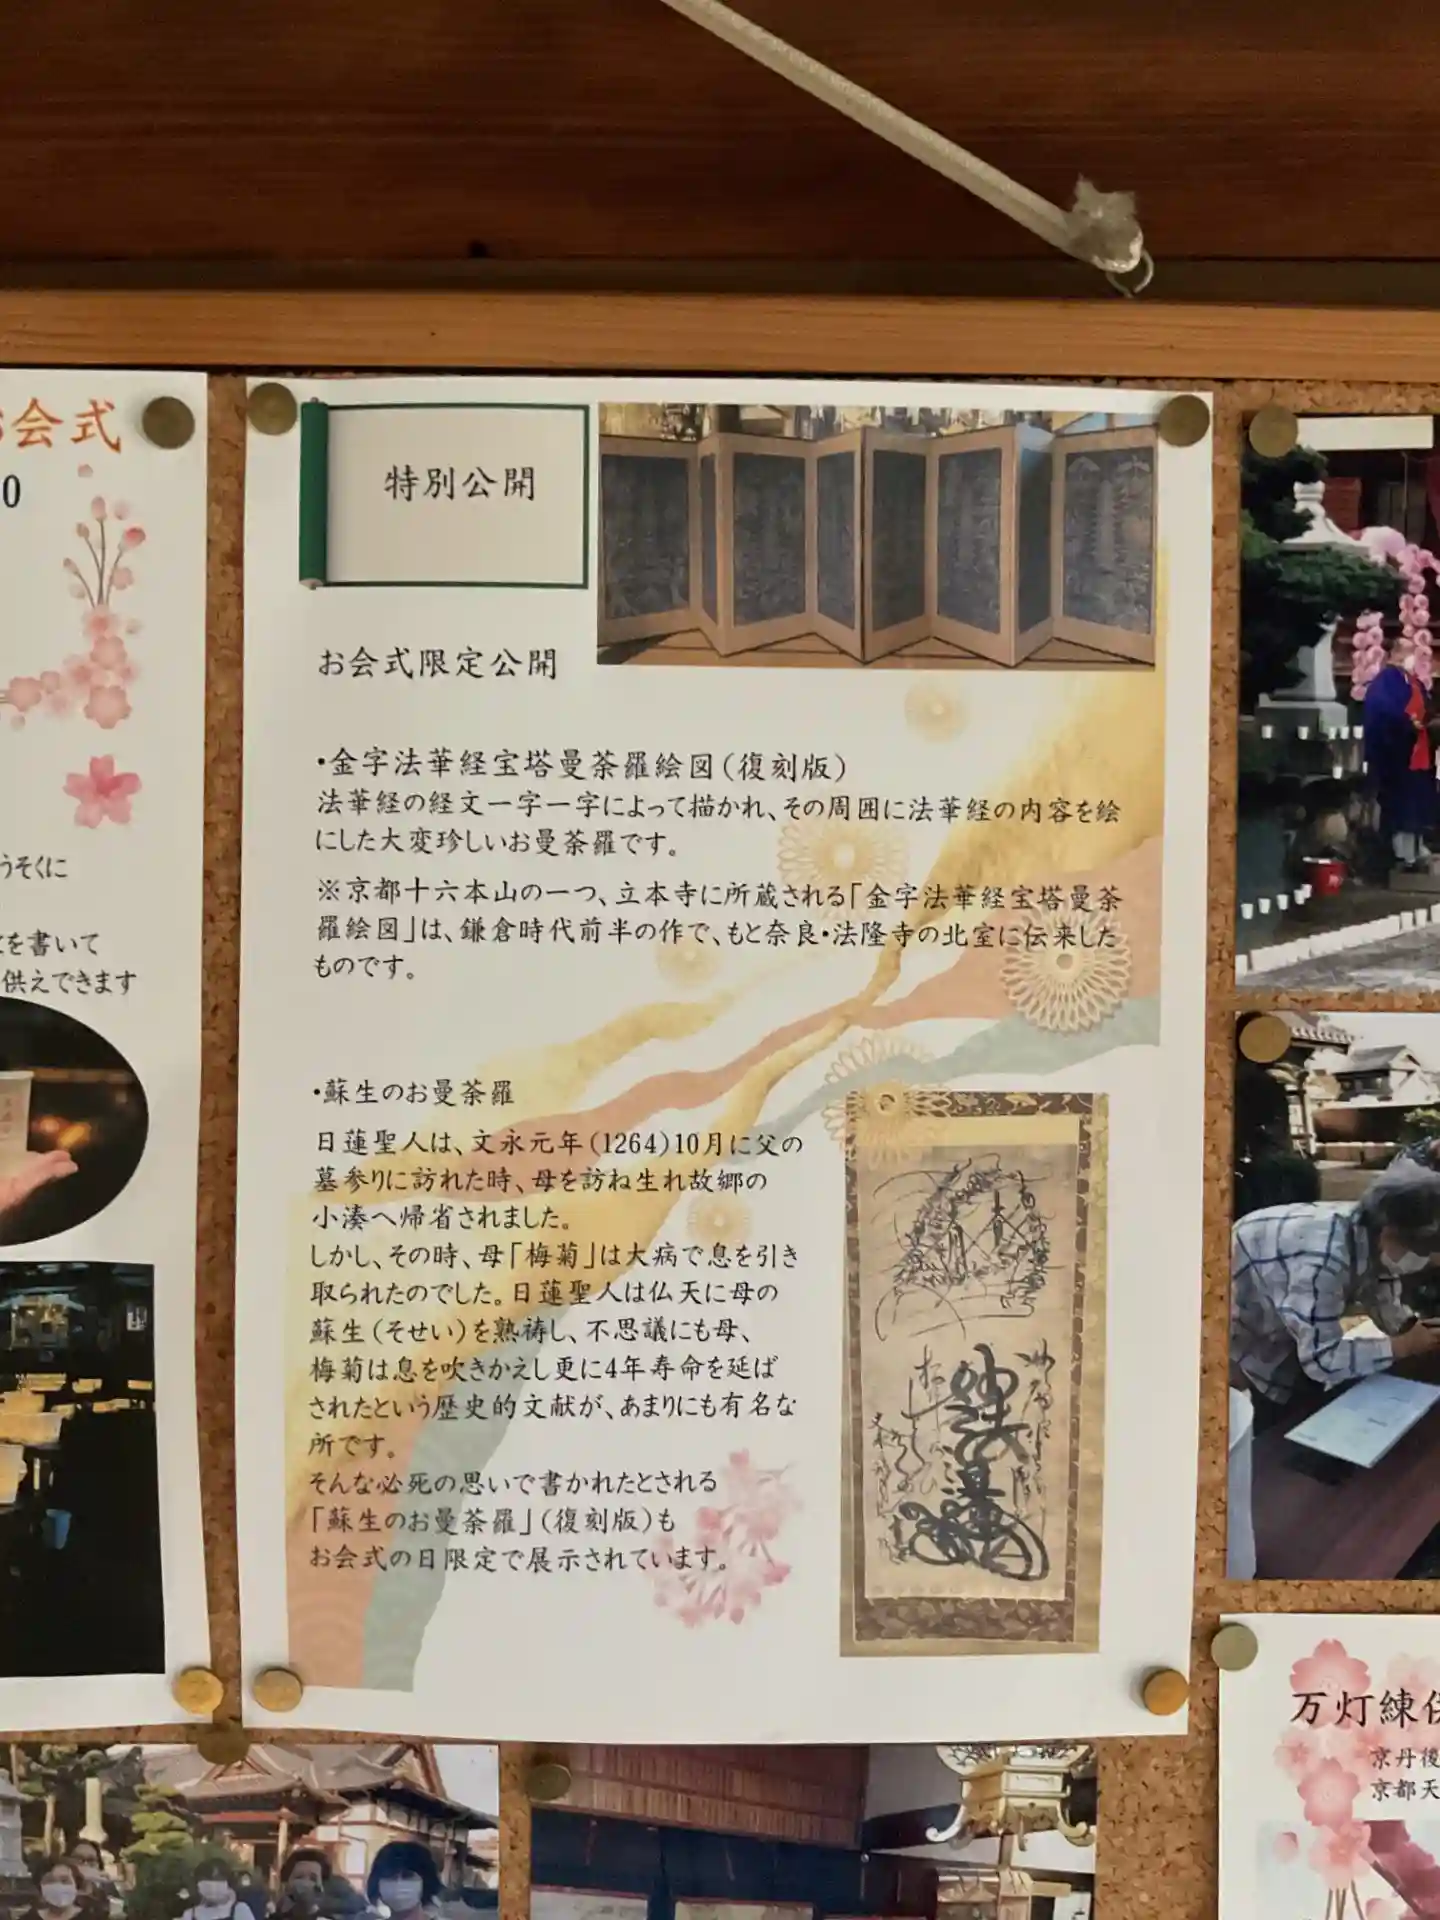 お会式
0
うそくに
を書いて
供えできます
特別公開
お会式限定公開
・金字法華経宝塔曼荼羅絵図(復刻版)
法華経の経文一字一字によって描かれ、その周囲に法華経の内容を絵
にした大変珍しいお曼荼羅です。
※京都十六本山の一つ、立本寺に所蔵される「金字法華経宝塔曼荼
羅絵図」は、鎌倉時代前半の作で、もと奈良・法隆寺の北室に伝来した
ものです。
・蘇生のお曼荼羅
日蓮聖人は、文永元年(1264)10月に父の
墓参りに訪れた時、母を訪ね生れ故郷の
小湊へ帰省されました。
しかし、その時、母「梅菊」は大病で息を引き
取られたのでした。日蓮聖人は仏天に母の
蘇生(そせい)を熟祷し、不思議にも母、
梅菊は息を吹きかえし更に4年寿命を延ば
されたという歴史的文献が、あまりにも有名な
所です。
そんな必死の思いで書かれたとされる
「蘇生のお曼荼羅」(復刻版)も
お会式の日限定で展示されています。
万灯練
京丹後
京都天